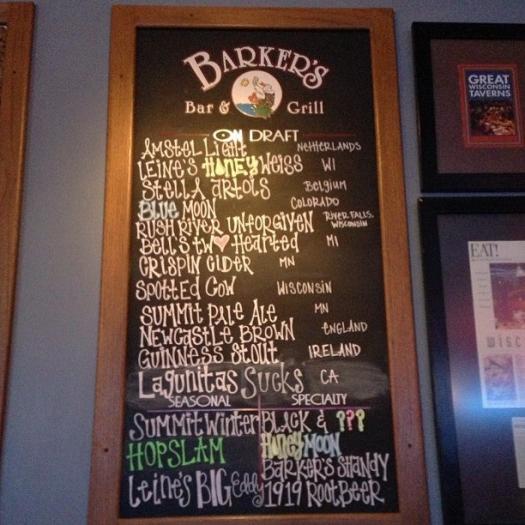 BARKER'S
Bar & Grill
ON DRAFT
AMSTEL LIGHT NETHERLANDS
LEINE'S HONEY WEISS WI
STELLA ARTOIS Belgium
BLUE MOON COLORADO
RUSH RIVER UNFORGIVEN RIVER FALLS, WISCONSIN
BELL'S TWO HEARTED MI
CRISPIN CIDER MN
SPOTTED COW WISCONSIN
SUMMIT PALE ALE MN
NEWCASTLE BROWN ENGLAND
GUINNESS STOUT IRELAND
LAGUNITAS SUCKS CA
SEASONAL SPECIALTY
SUMMIT WINTER BLACK & ???
HOPSLAM HONEY MOON
BARKER'S SHANDY
LEINE'S BIG Eddy 1919 ROOT BEER
GREAT WISCONSIN TAVERNS
EAT!